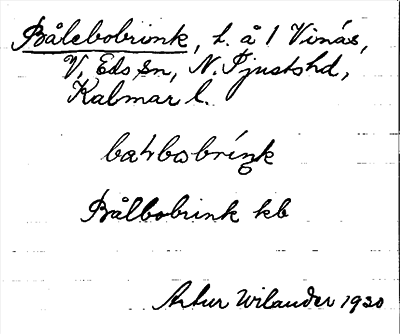 Bålebobrink, t. å 1 Vinás,
V. Eds sn, N. Tjustshd,
Kalmar l.
Bålbobrink kb
Artur Wilander 1930